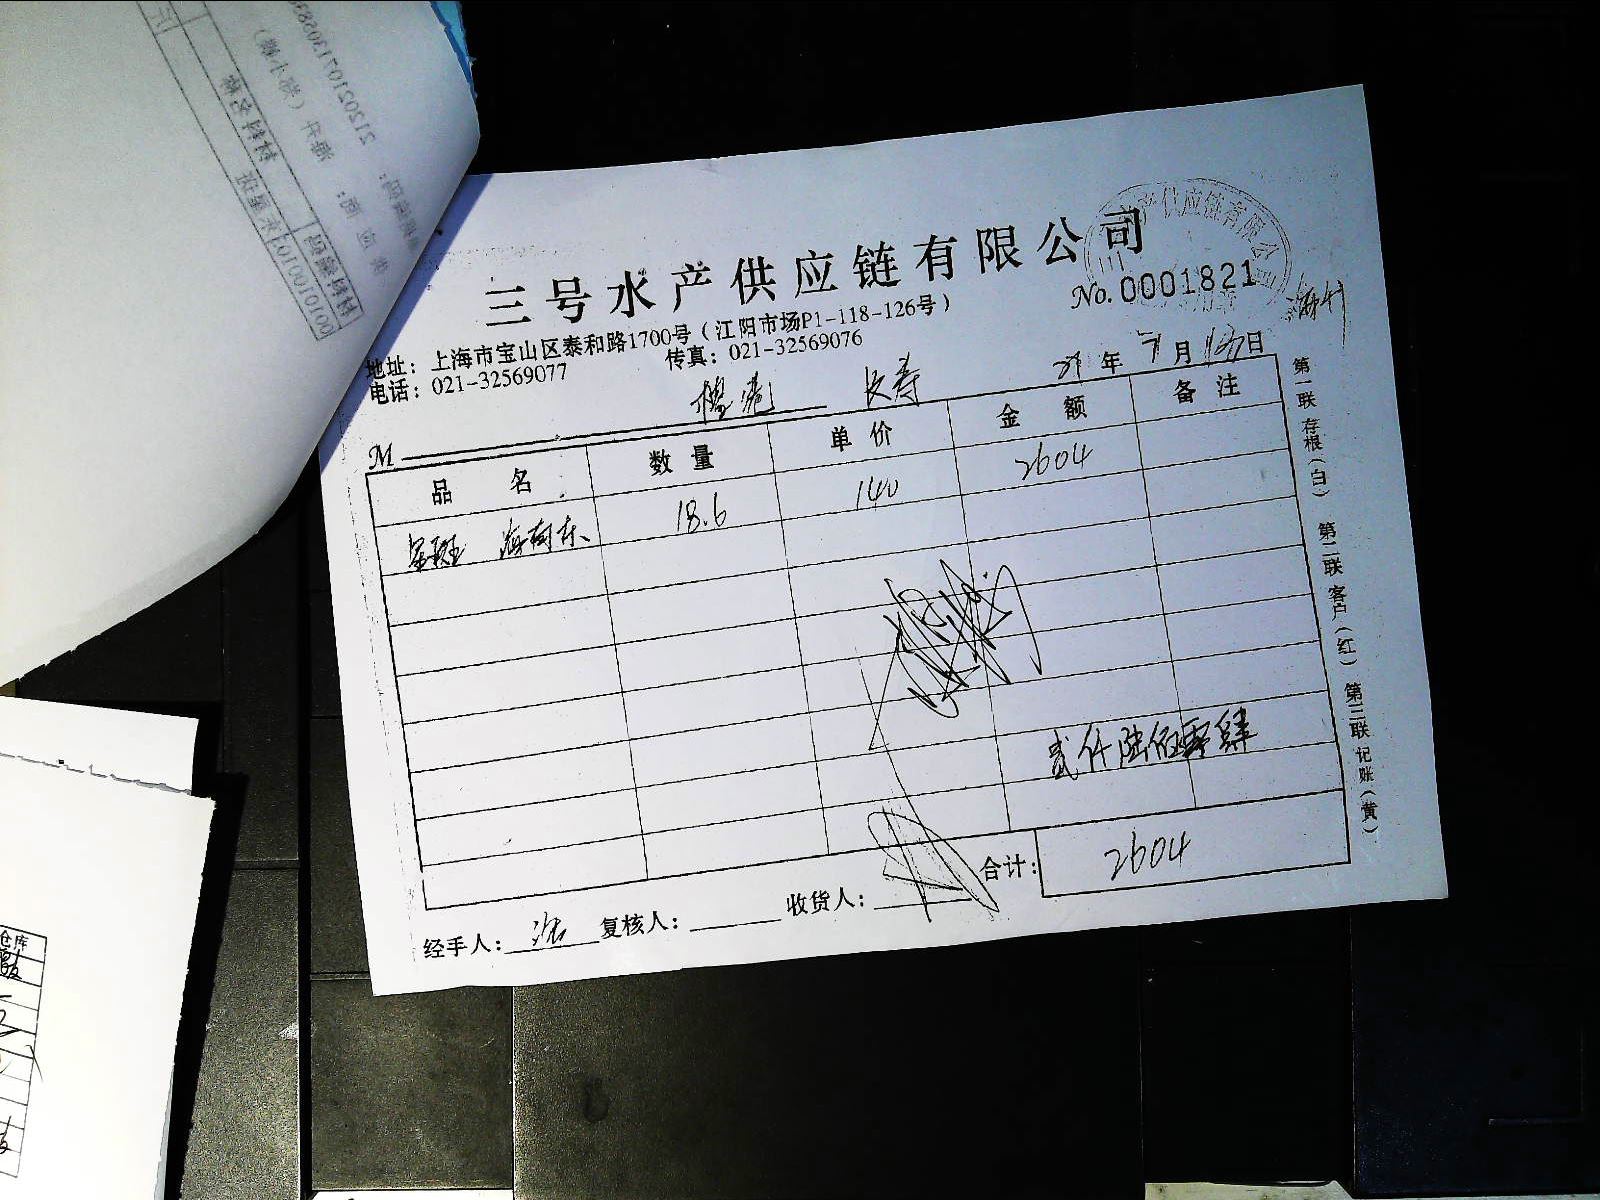 三号水产供应链有限公司
No. 0001821
地址：上海市宝山区泰和路1700号（江阳市场P1-118-126号）
电话：021-32569077 传真：021-32569076
年 月 日
M 长寿
品名 数量 单价 金额 备注
星斑 海南东 18.6 140 2604
贰仟陆佰零肆
合计： 2604
经手人： 复核人： 收货人：
第一联 存根（白） 第二联 客户（红） 第三联 记账（黄）
水产供应链有限公司
材料名称
材料编码
东星斑
01001001
仓库